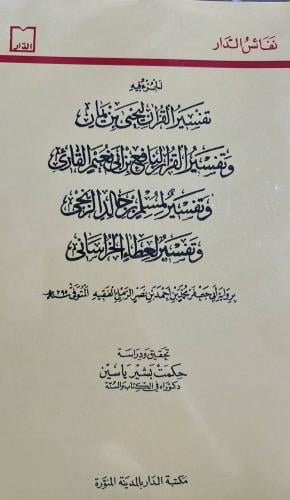 نفائس الدار
الدار
الجزء فيه
تفسير القرآن ليحيى بن يمان
وتفسير القرآن لنافع بن أبي نعيم القارئ
وتفسير لمسلم بن خالد الزنجي
وتفسير لعطاء الخراساني
برواية أبي جعفر محمد بن أحمد بن نصر الرملي الفقيه المتوفى سنة ٢٩٥هـ
تحقيق ودراسة
حكمت بشير ياسين
دكتوراه في الكتاب والسنة
مكتبة الدار بالمدينة المنورة